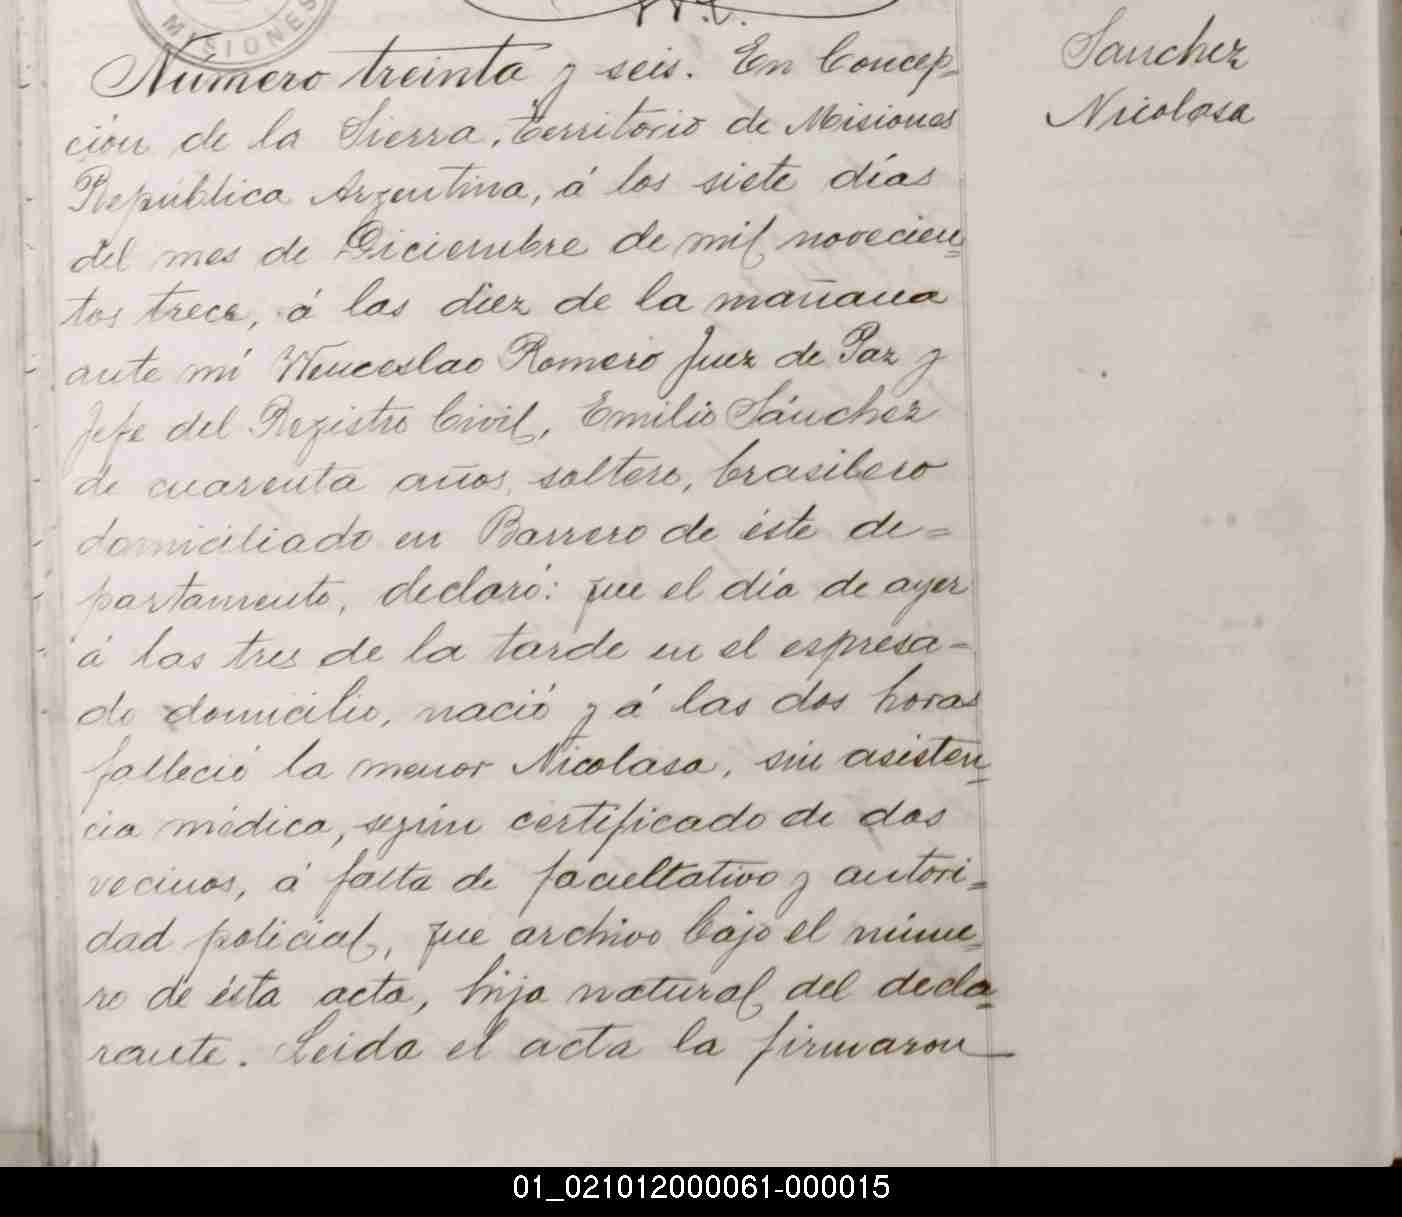 MISIONES
Número treinta y seis. En Concep-
ción de la Sierra, territorio de Misiones
República Argentina, á los siete días
del mes de Diciembre de mil novecien-
tos trece, á las diez de la mañana
ante mí Wenceslao Romero Juez de Paz y
Jefe del Registro Civil, Emilio Sánchez
de cuarenta años, soltero, brasilero
domiciliado en Barrero de éste de=
partamento, declaró: que el día de ayer
á las tres de la tarde en el espresa-
do domicilio, nació y á las dos horas
falleció la menor Nicolasa, sin asisten-
cia médica, según certificado de dos
vecinos, á falta de facultativo y autori=
dad policial, que archivo bajo el núme-
ro de ésta acta, hija natural del decla=
rante. Leida el acta la firmaron
Sanchez
Nicolasa
01_021012000061-000015